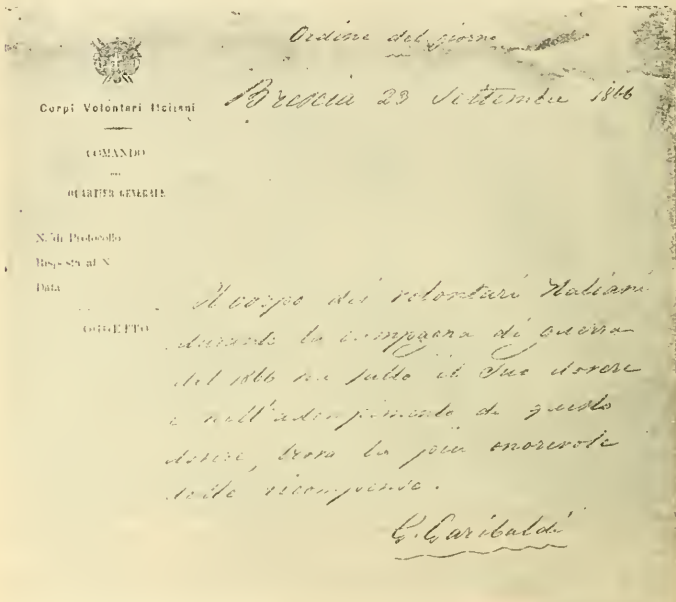 Ordine del giorno
Brescia 23 Settembre 1866
Corpi Volontari Italiani
COMANDO
DEL
QUARTIER GENERALE
N. di Protocollo
Risposta al N.
Data
OGGETTO
Il corpo dei volontari Italiani
durante la campagna di guerra
del 1866 ha fatto il suo dovere
e nell'adempimento di questo
dovere, trova la più onorevole
delle ricompense.
G. Garibaldi